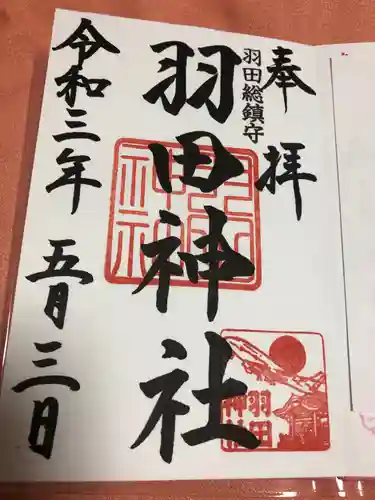 奉拝
羽田総鎮守
羽田神社
令和三年 五月三日
羽田
神社
羽田
神社